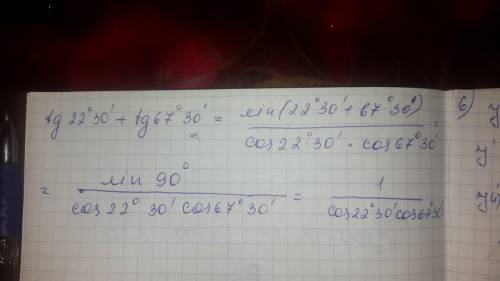 tg 22°30' + tg 67°30' = sin(22°30' + 67°30') / cos 22°30' · cos 67°30' =
= sin 90° / cos 22° 30' cos 67° 30' = 1 / cos 22°30' cos 67°30'
б) y
y'
y'